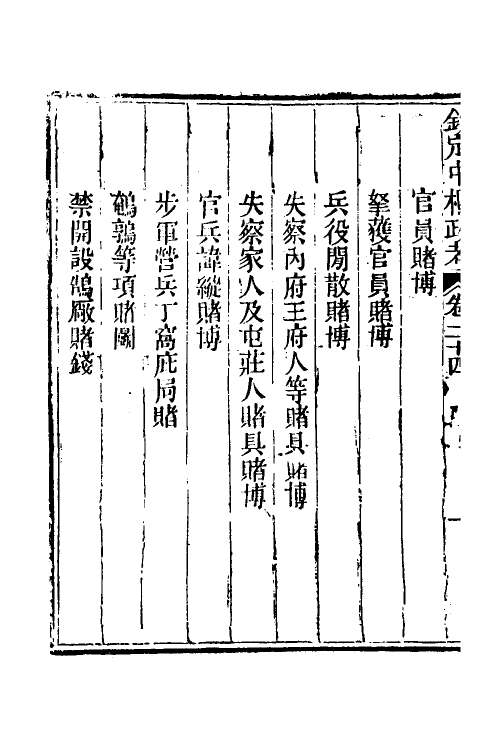 欽定中樞政考 卷二十四
官員賭博
拏獲官員賭博
兵役閒散賭博
失察內府王府人等賭具賭博
失察家人及屯莊人賭具賭博
官兵諱縱賭博
步軍營兵丁窩庇局賭
鵪鶉等項賭鬭
禁開設鵪廠賭錢